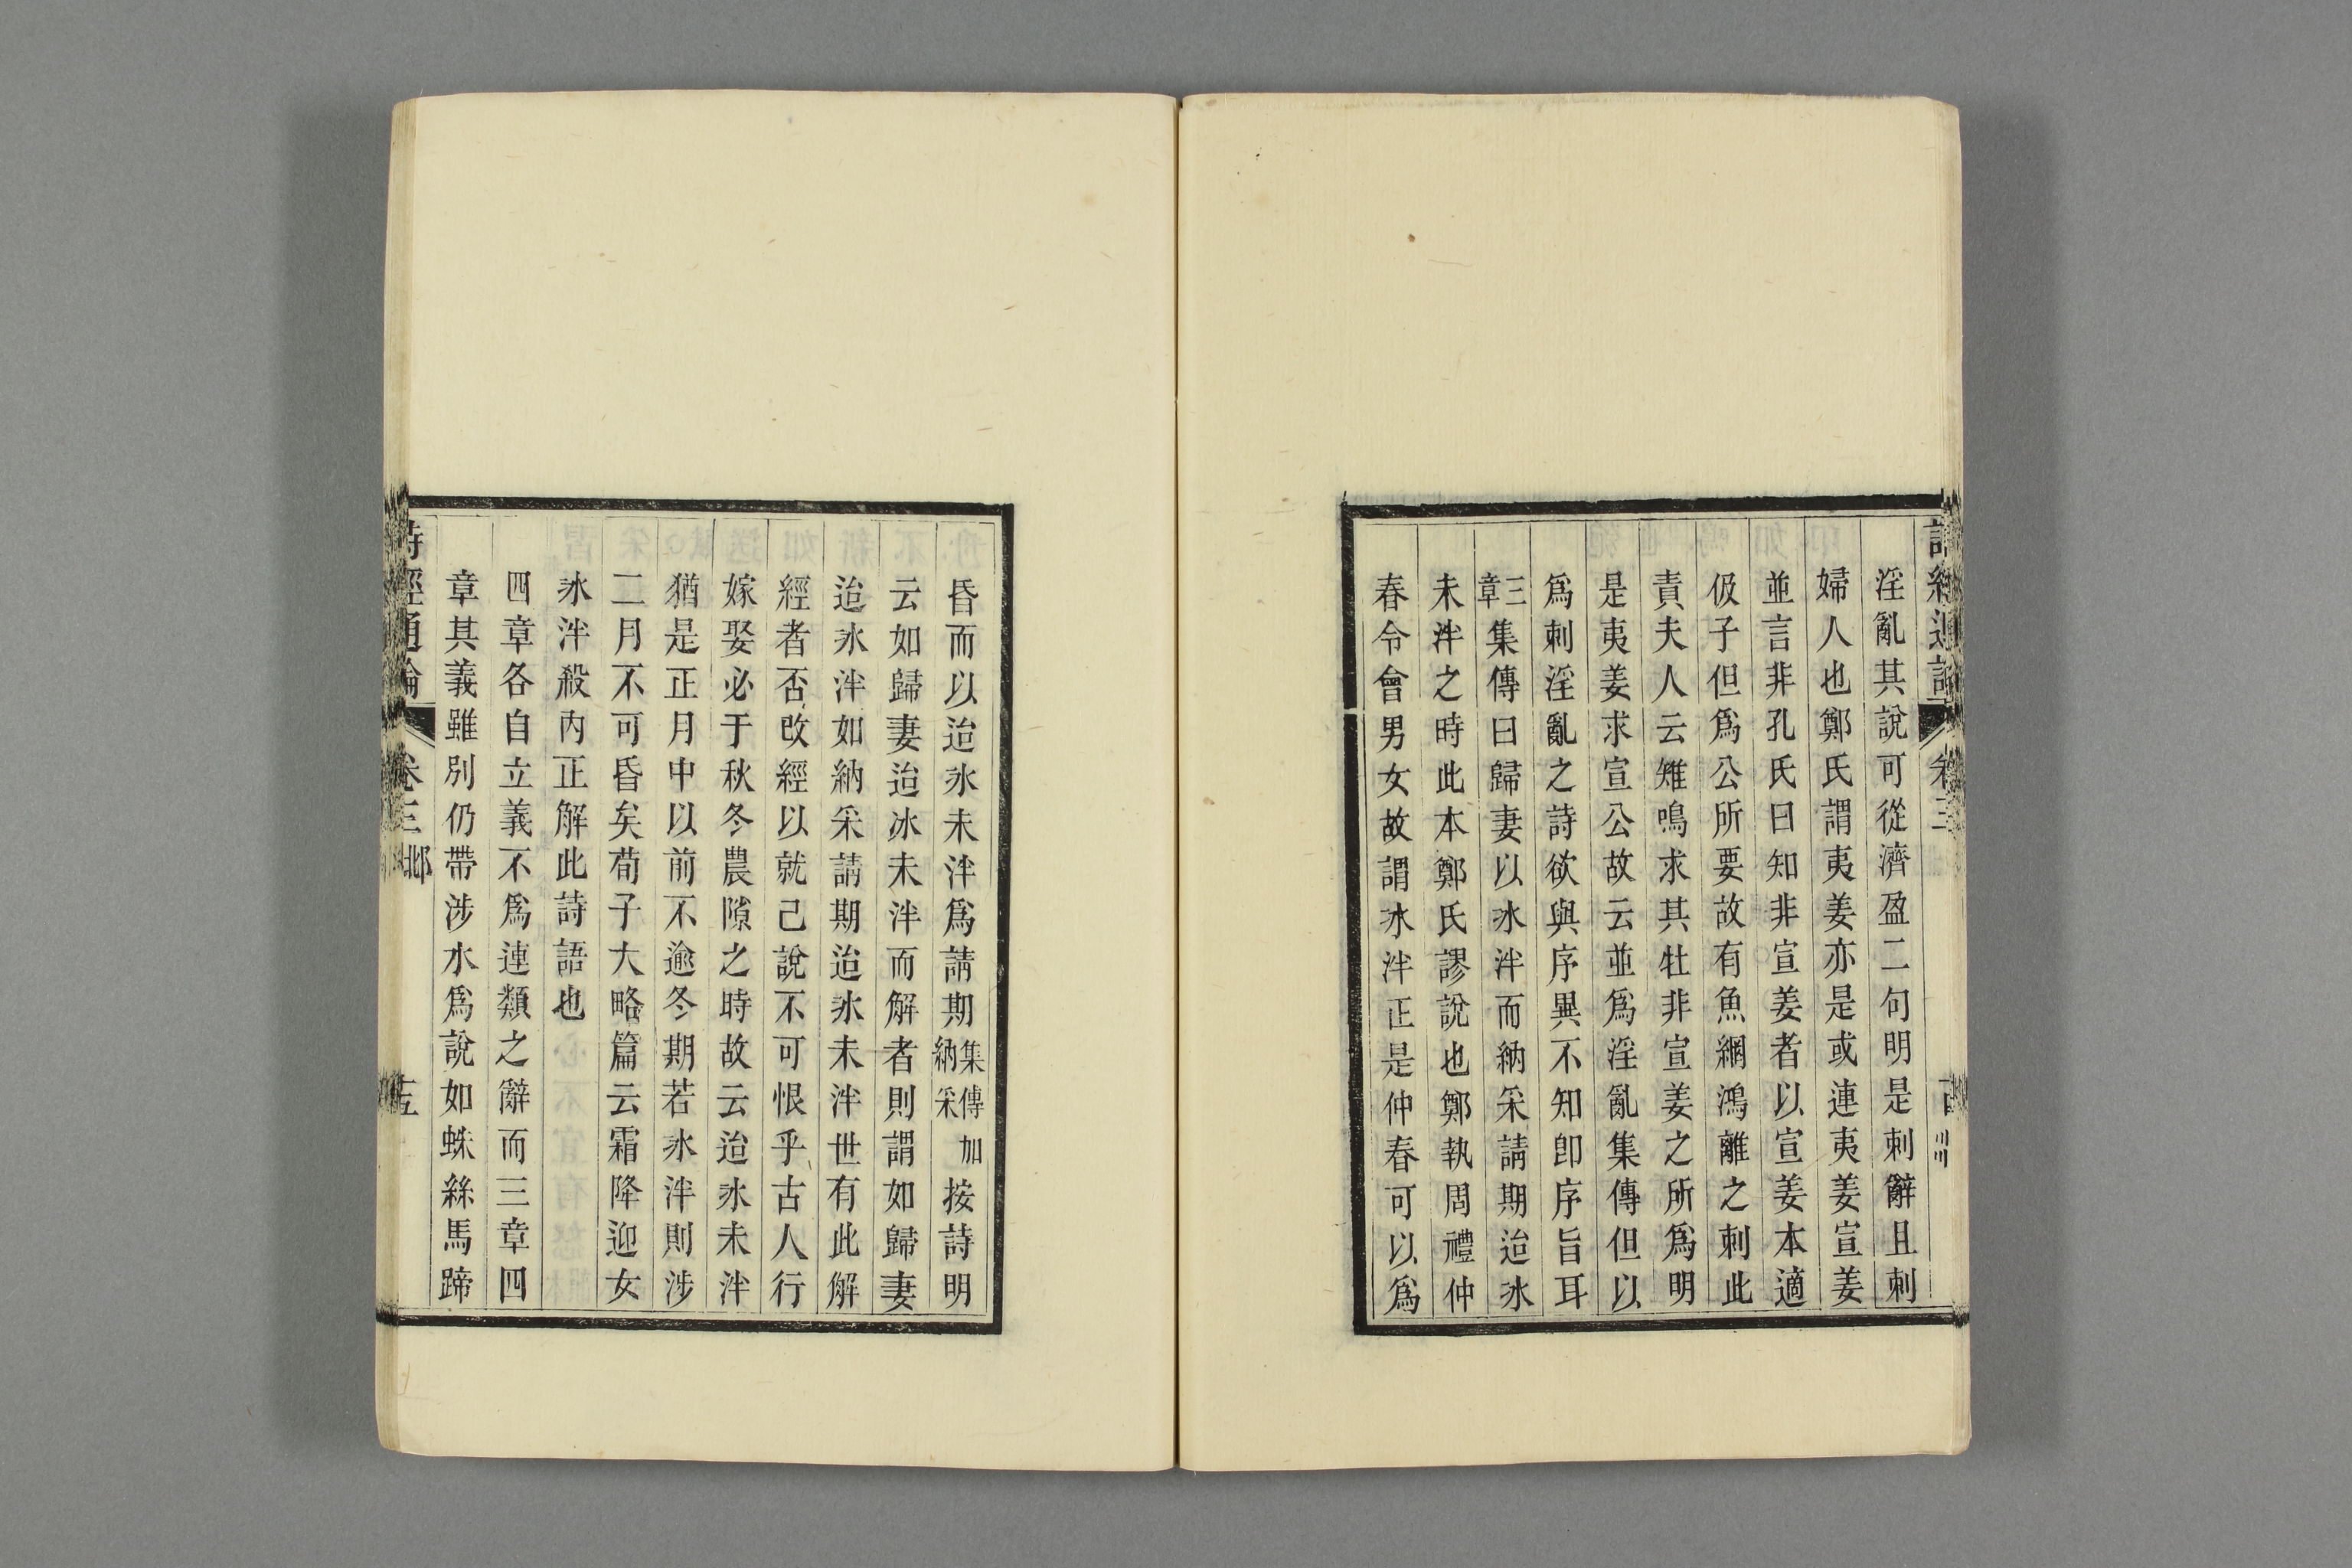 淫亂其說可從濟盈二句明是刺辭且刺
婦人也鄭氏謂夷姜亦是或連夷姜宣姜
並言非孔氏曰知非宣姜者以宣姜本適
伋子但爲公所要故有魚網鴻離之刺此
責夫人云雉鳴求其牡非宣姜之所爲明
是夷姜求宣公故云並爲淫亂集傳但以
爲刺淫亂之詩欲與序異不知卽序旨耳
三章集傳曰歸妻以冰泮而納采請期迨冰
未泮之時此本鄭氏謬說也鄭執周禮仲
春令會男女故謂冰泮正是仲春可以爲
昏而以迨冰未泮爲請期集傳加納采按詩明
云如歸妻迨冰未泮而解者則謂如歸妻
迨冰泮如納采請期迨冰未泮世有此解
經者否改經以就己說不可恨乎古人行
嫁娶必于秋冬農隙之時故云迨冰未泮
猶是正月中以前不逾冬期若冰泮則涉
二月不可昏矣荀子大略篇云霜降迎女
冰泮殺內正解此詩語也
四章各自立義不爲連類之辭而三章四
章其義雖別仍帶涉水爲說如蛛絲馬蹄
詩經通論 卷三 邶 十五